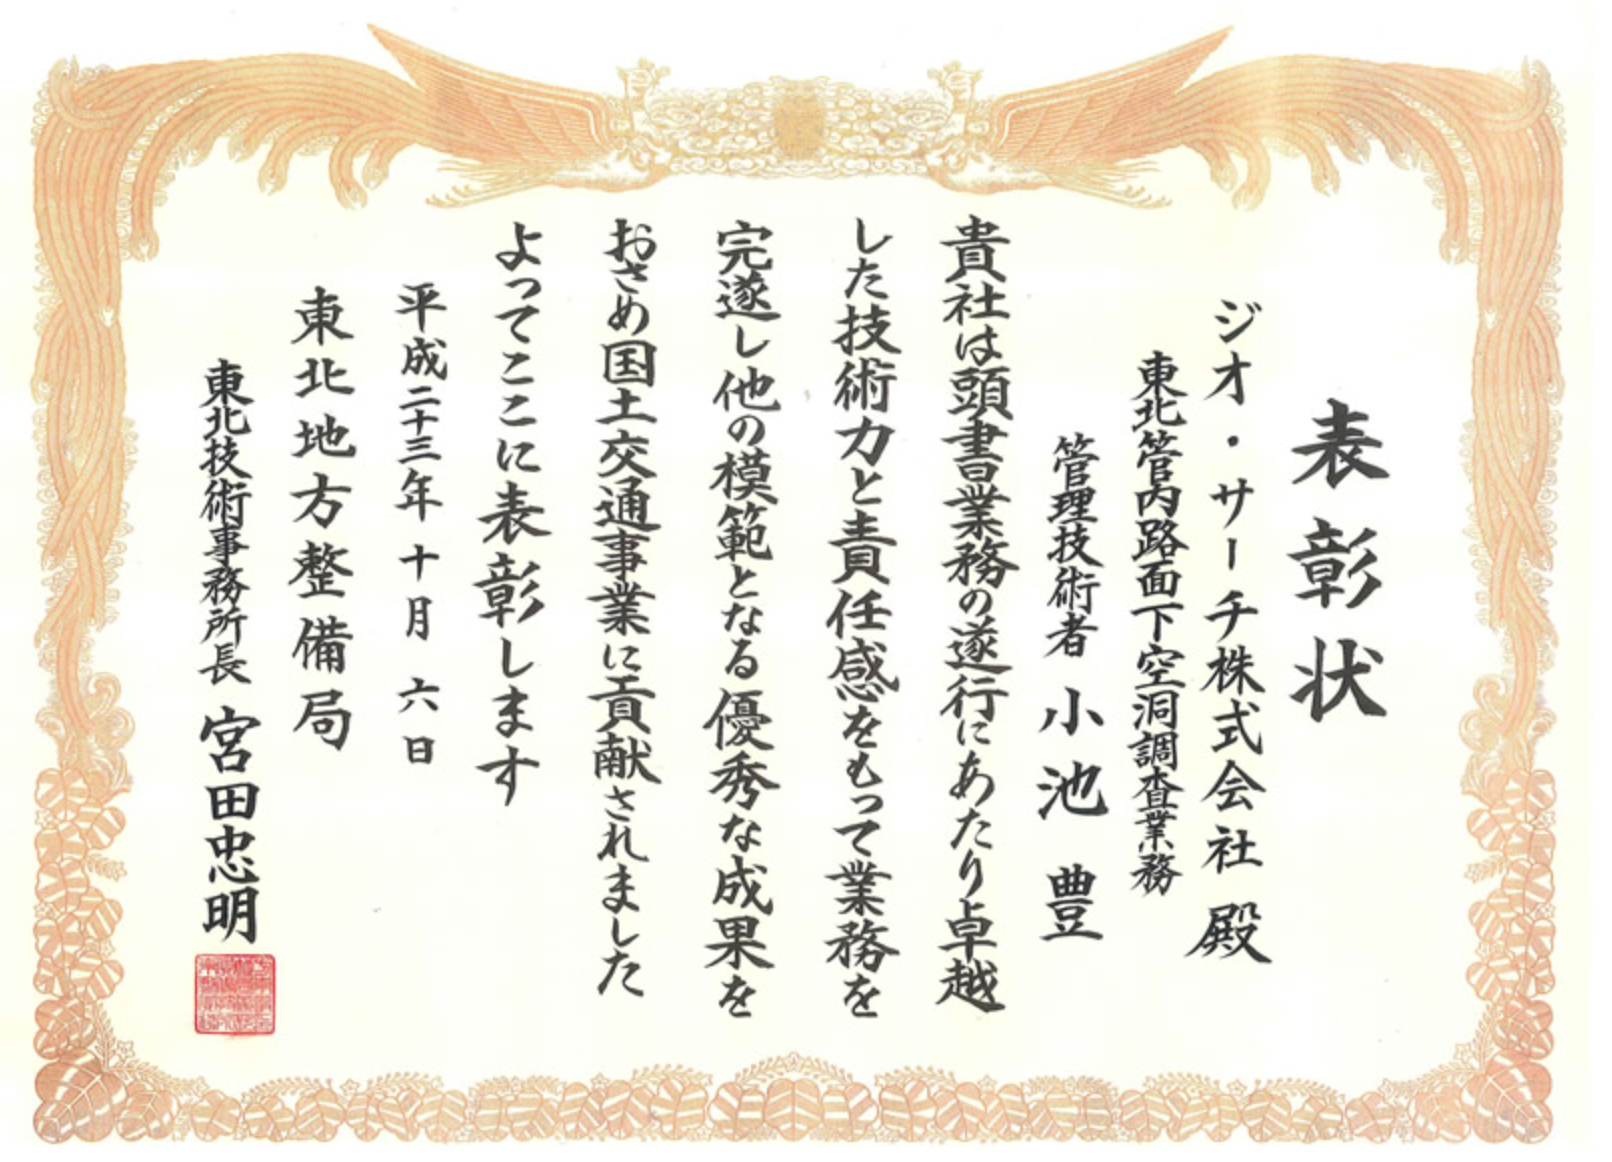 表彰状
ジオ・サーチ株式会社 殿
東北管内路面下空洞調査業務
管理技術者 小池 豊
貴社は頭書業務の遂行にあたり卓越
した技術力と責任感をもって業務を
完遂し他の模範となる優秀な成果を
おさめ国土交通事業に貢献されました
よってここに表彰します
平成二十三年十月六日
東北地方整備局
東北技術事務所長 宮田忠明